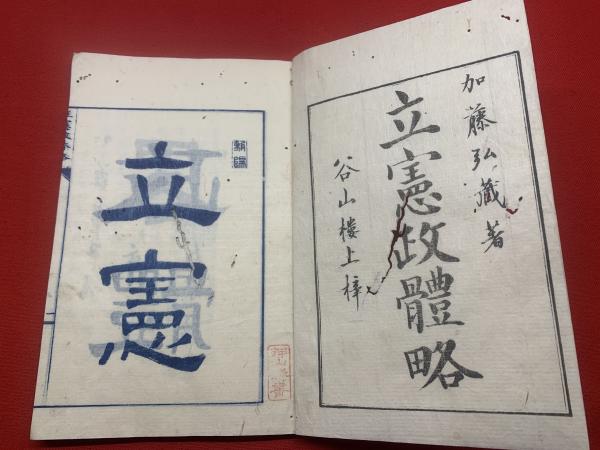 加藤弘藏著
立憲政體略
谷山楼上梓
立憲